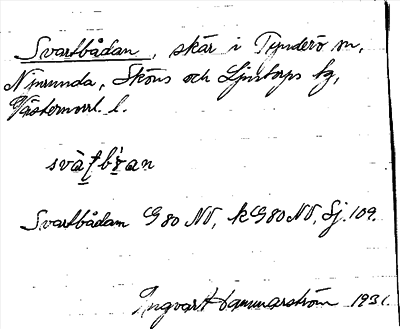 Svartbådan, skär i Tynderö sn,
Njurunda, Sköns och Ljustorps tg,
Västernorrl. l.
Svartbådan G 80 NV, k G 80 NV, Sj. 109.
Ingvar Hammarström 1931.